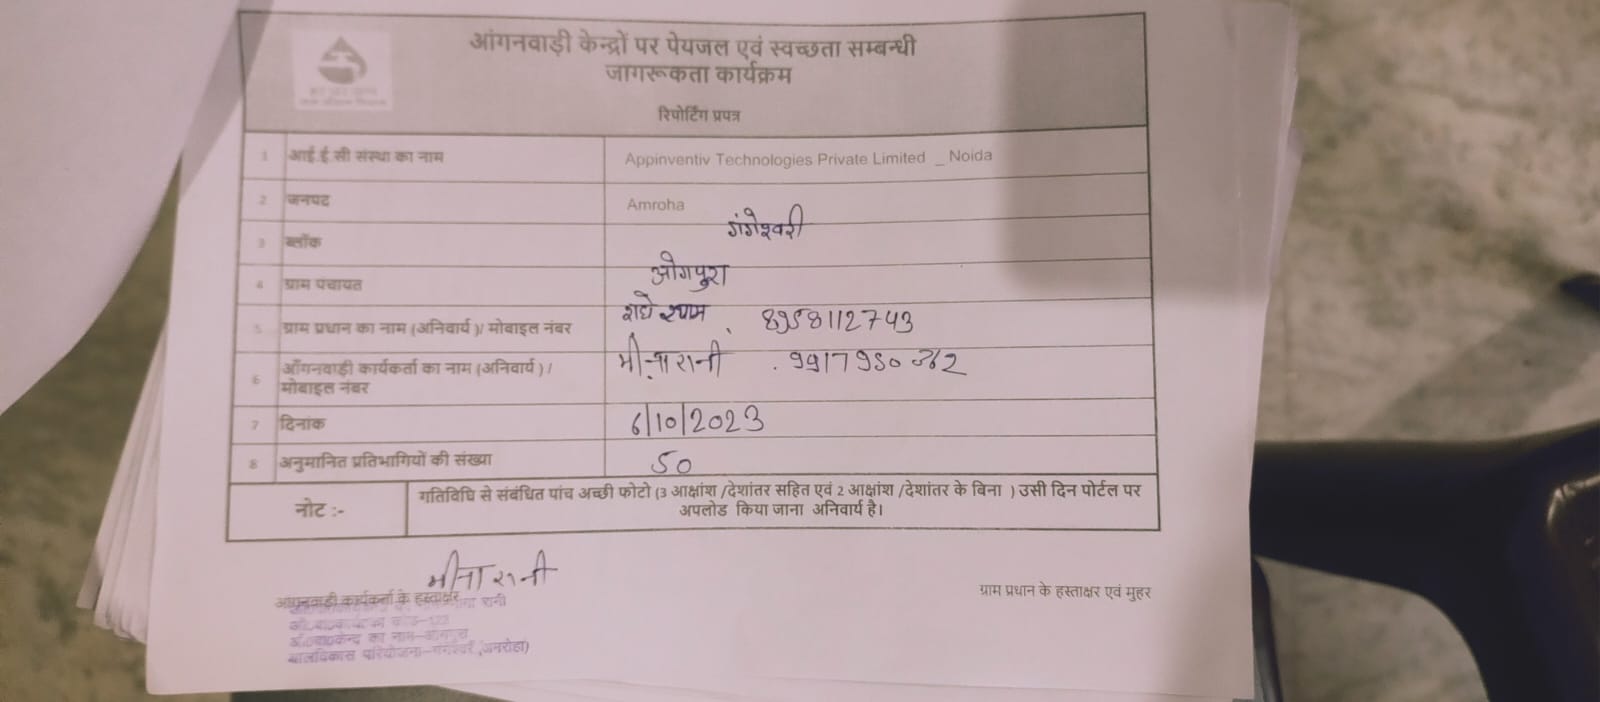 आंगनवाड़ी केन्द्रों पर पेयजल एवं स्वच्छता सम्बन्धी
जागरूकता कार्यक्रम
रिपोर्टिंग प्रपत्र
1 आई.ई.सी संस्था का नाम Appinventiv Technologies Private Limited _ Noida
2 जनपद Amroha
3 ब्लॉक गंगेश्वरी
4 ग्राम पंचायत ओगपुरा
5 ग्राम प्रधान का नाम (अनिवार्य )/ मोबाइल नंबर राधे श्याम , 8958112743
6 आँगनवाड़ी कार्यकर्ता का नाम (अनिवार्य ) /
मोबाइल नंबर मीना रानी
7 दिनांक 6/10/2023
8 अनुमानित प्रतिभागियों की संख्या 50
नोट :- गतिविधि से संबंधित पांच अच्छी फोटो (3 आक्षांश /देशांतर सहित एवं 2 आक्षांश /देशांतर के बिना ) उसी दिन पोर्टल पर
अपलोड किया जाना अनिवार्य है।
मीना रानी
आंगनवाड़ी कार्यकर्ता के हस्ताक्षर
ग्राम प्रधान के हस्ताक्षर एवं मुहर
रानी
केन्द्र का नाम
बालविकास परियोजना (अमरोहा)